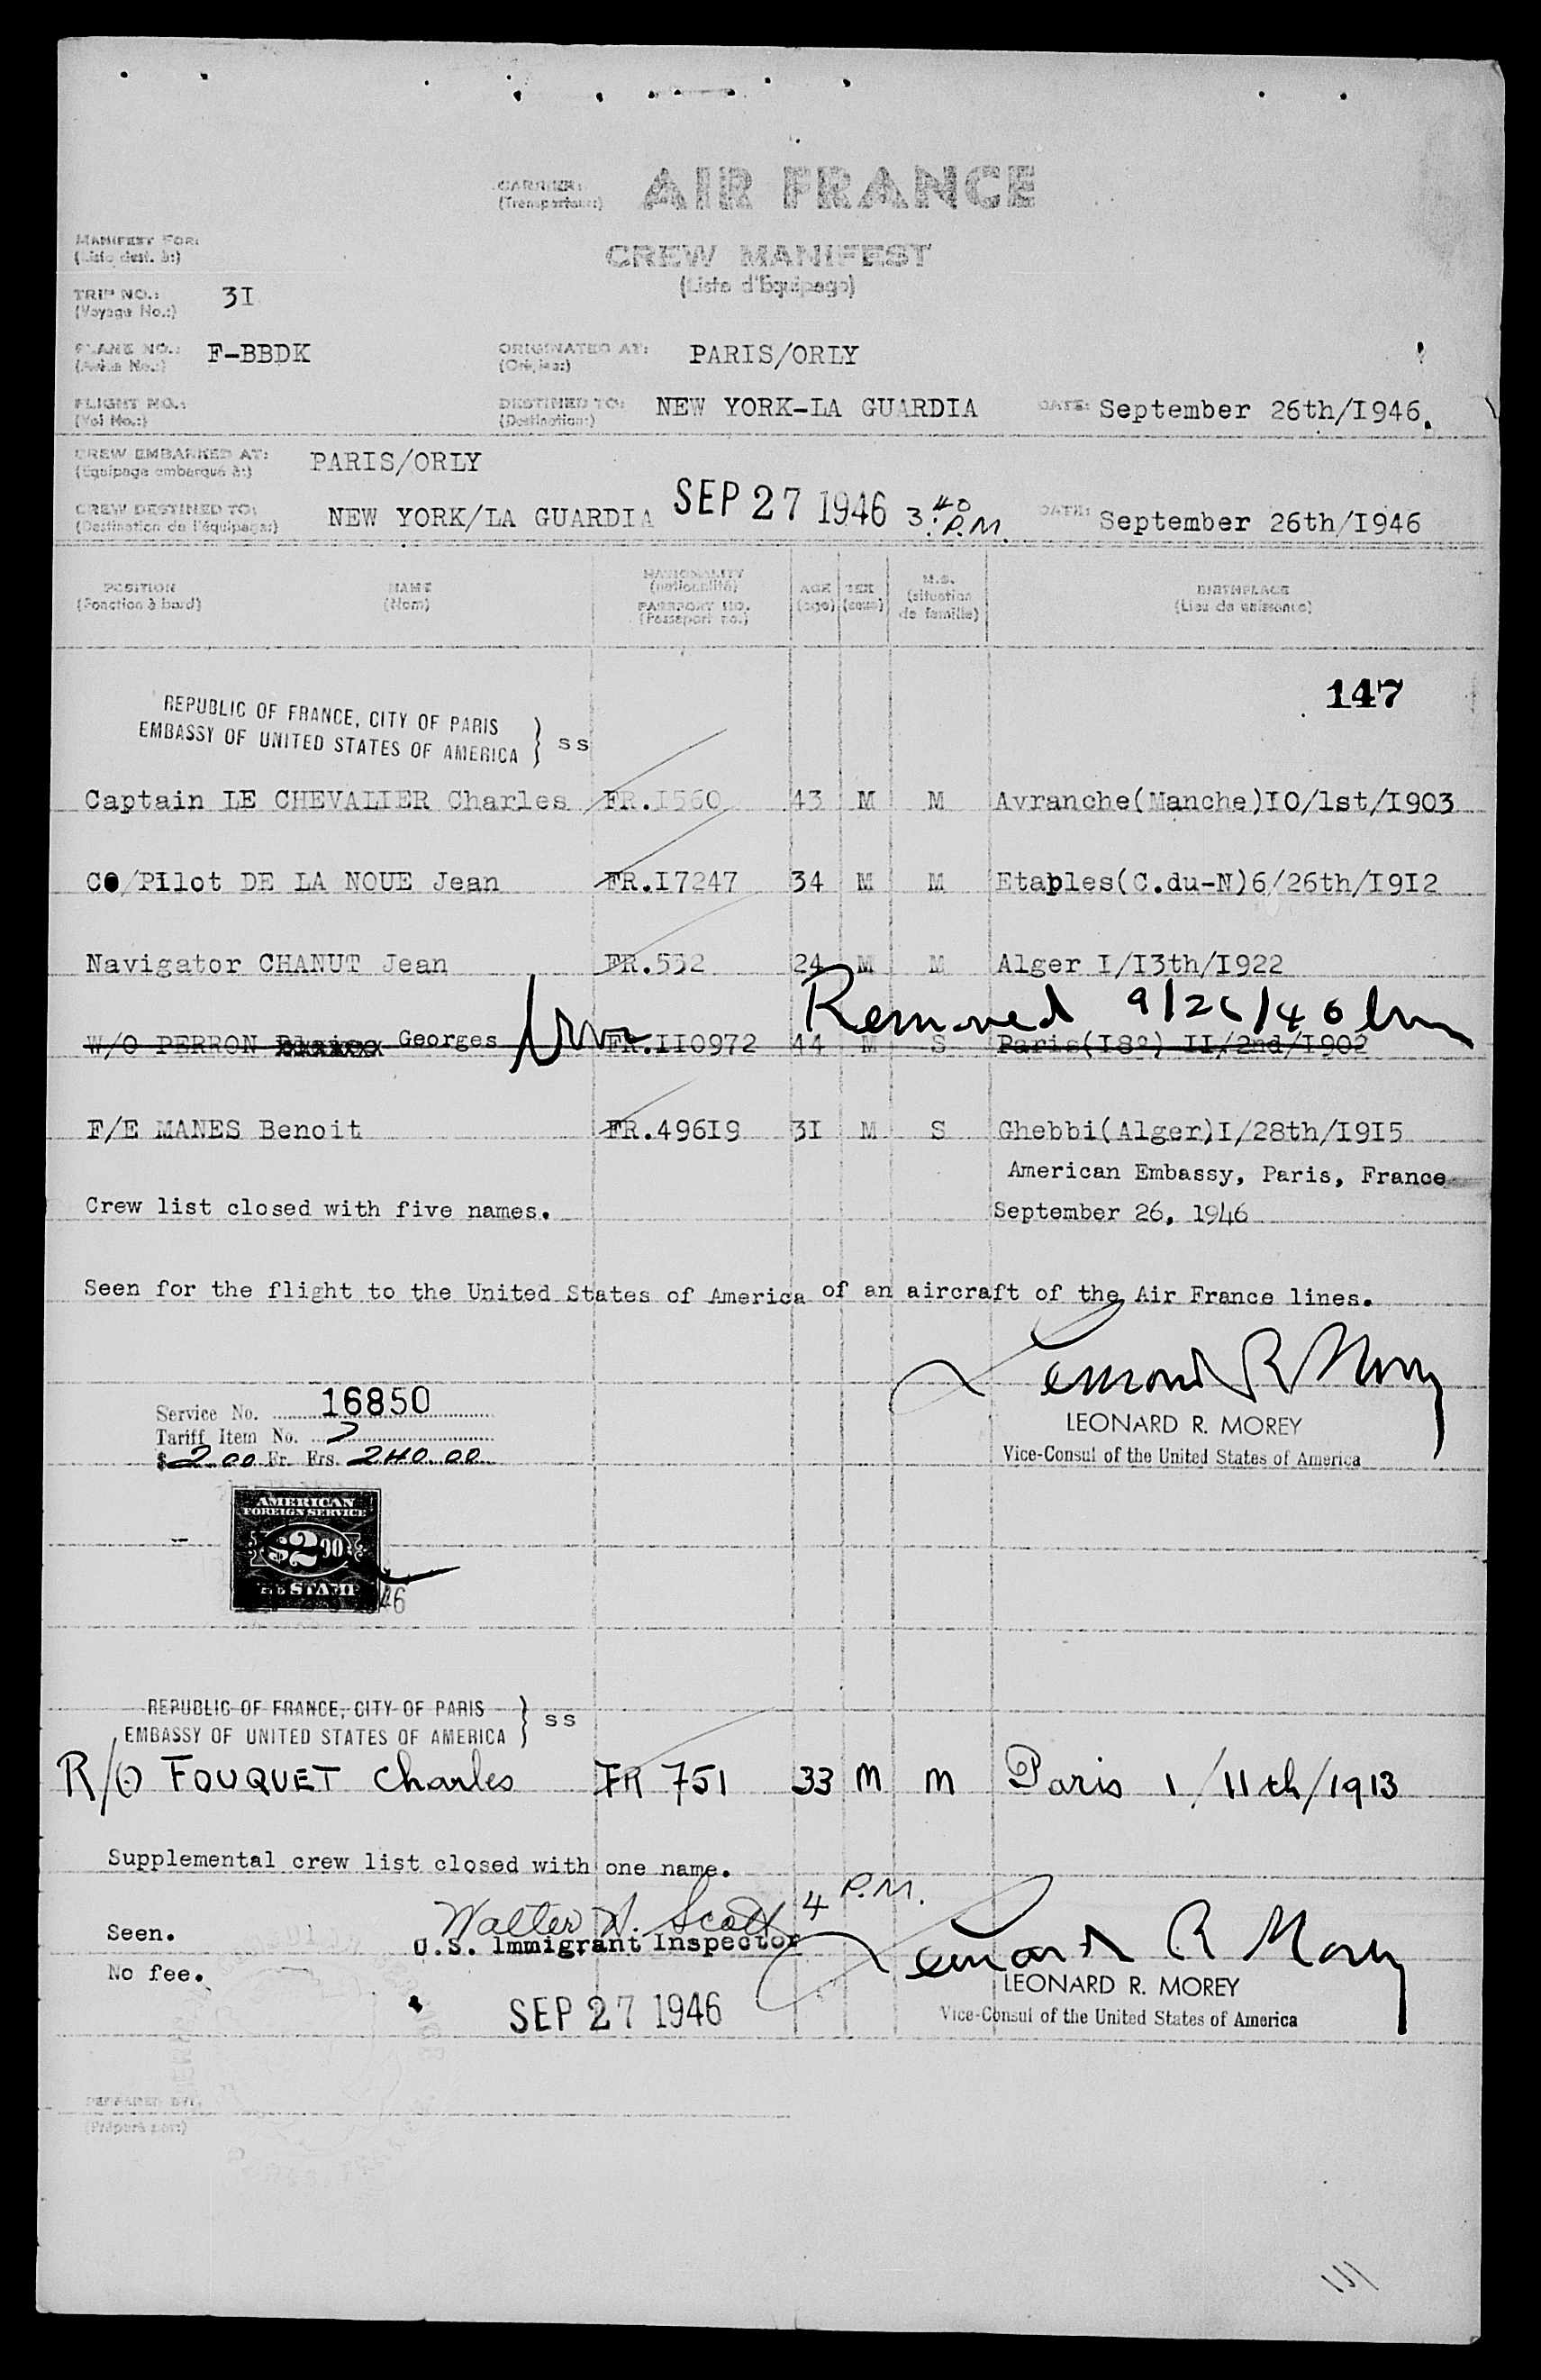 CARRIER: AIR FRANCE
(Transporteur:)
MANIFEST FOR:
(Liste dest. à:)
CREW MANIFEST
(Liste d'Equipage)
TRIP NO.: 3I
(Voyage No.:)
PLANE NO.: F-BBDK ORIGINATED AT: PARIS/ORLY
(Avion No.:) (Origine:)
FLIGHT NO.: DESTINED TO: NEW YORK-LA GUARDIA DATE: September 26th/I946.
(Vol No.:) (Destination:)
CREW EMBARKED AT: PARIS/ORLY
(Equipage embarqué à:)
CREW DESTINED TO: NEW YORK/LA GUARDIA SEP 27 1946 3:40 P.M. DATE: September 26th/I946
(Destination de l'équipage:)
POSITION NAME NATIONALITY AGE SEX M.S. BIRTHPLACE
(Fonction à bord) (Nom) (nationalité) (age) (sexe) (situation de famille) (Lieu de naissance)
PASSPORT NO.
(Passeport no.)
147
REPUBLIC OF FRANCE, CITY OF PARIS
EMBASSY OF UNITED STATES OF AMERICA } SS
Captain LE CHEVALIER Charles FR.I560 43 M M Avranche(Manche)IO/1st/I903
CO/Pilot DE LA NOUE Jean FR.I7247 34 M M Etaples(C.du-N)6/26th/I9I2
Navigator CHANUT Jean FR.532 24 M M Alger I/I3th/I922
Removed 9/26/46 lrm
W/O PERRON Georges FR.II0972 44 M S Paris(I8°) II/2nd/I902
F/E MANES Benoit FR.496I9 3I M S Ghebbi(Alger)I/28th/I9I5
American Embassy, Paris, France
Crew list closed with five names. September 26, 1946
Seen for the flight to the United States of America of an aircraft of the Air France lines.
Leonard R Morey
Service No. 16850
LEONARD R. MOREY
Tariff Item No. 7
Vice-Consul of the United States of America
$ 2.00 Fr. Frs. 240.00
AMERICAN
FOREIGN SERVICE
$2.00
FEE STAMP
46
REPUBLIC OF FRANCE, CITY OF PARIS
EMBASSY OF UNITED STATES OF AMERICA } SS
R/O FOUQUET Charles FR 751 33 M M Paris 1/11th/1913
Supplemental crew list closed with one name.
4 P.M.
Seen. Walter N. Scott Leonard R Morey
U.S. Immigrant Inspector
No fee. LEONARD R. MOREY
SEP 27 1946 Vice-Consul of the United States of America
PREPARED BY:
(Préparé par:)